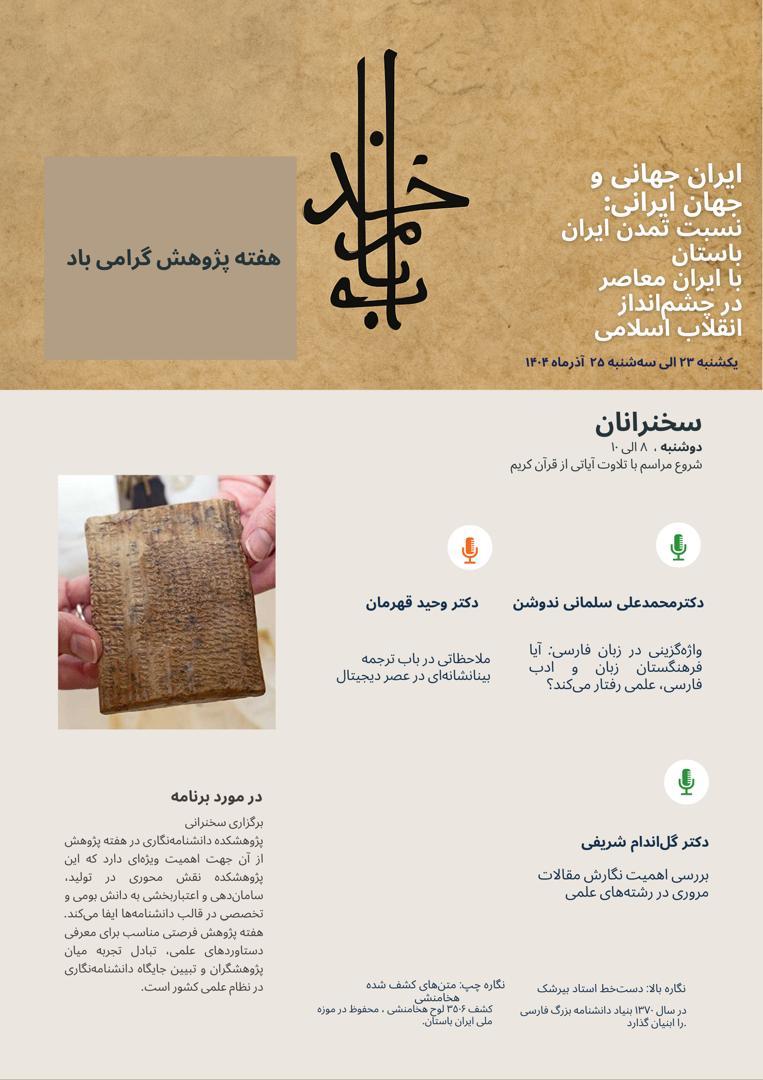 ایران جهانی و
جهان ایرانی:
نسبت تمدن ایران
باستان
با ایران معاصر
در چشم‌انداز
انقلاب اسلامی
یکشنبه ۲۳ الی سه‌شنبه ۲۵ آذرماه ۱۴۰۴
هفته پژوهش گرامی باد
سخنرانان
دوشنبه ، ۸ الی ۱۰
شروع مراسم با تلاوت آیاتی از قرآن کریم
دکترمحمدعلی سلمانی ندوشن
واژه‌گزینی در زبان فارسی: آیا
فرهنگستان زبان و ادب
فارسی، علمی رفتار می‌کند؟
دکتر وحید قهرمان
ملاحظاتی در باب ترجمه
بینانشانه‌ای در عصر دیجیتال
دکتر گل‌اندام شریفی
بررسی اهمیت نگارش مقالات
مروری در رشته‌های علمی
در مورد برنامه
برگزاری سخنرانی
پژوهشکده دانشنامه‌نگاری در هفته پژوهش
از آن جهت اهمیت ویژه‌ای دارد که این
پژوهشکده نقش محوری در تولید،
سامان‌دهی و اعتباربخشی به دانش بومی و
تخصصی در قالب دانشنامه‌ها ایفا می‌کند.
هفته پژوهش فرصتی مناسب برای معرفی
دستاوردهای علمی، تبادل تجربه میان
پژوهشگران و تبیین جایگاه دانشنامه‌نگاری
در نظام علمی کشور است.
نگاره بالا: دست‌خط استاد بیرشک
در سال ۱۳۷۰ بنیاد دانشنامه بزرگ فارسی
را ابنیان گذارد.
نگاره چپ: متن‌های کشف شده
هخامنشی
کشف ۳۵۰۶ لوح هخامنشی ، محفوظ در موزه
ملی ایران باستان.